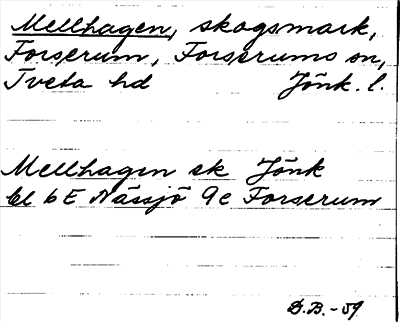 Mellhagen, skogsmark,
Forserum, Forserums sn,
Tveta hd Jönk. l.
Mellhagen sk Jönk
bl 6E Nässjö 9e Forserum
D.B.-59